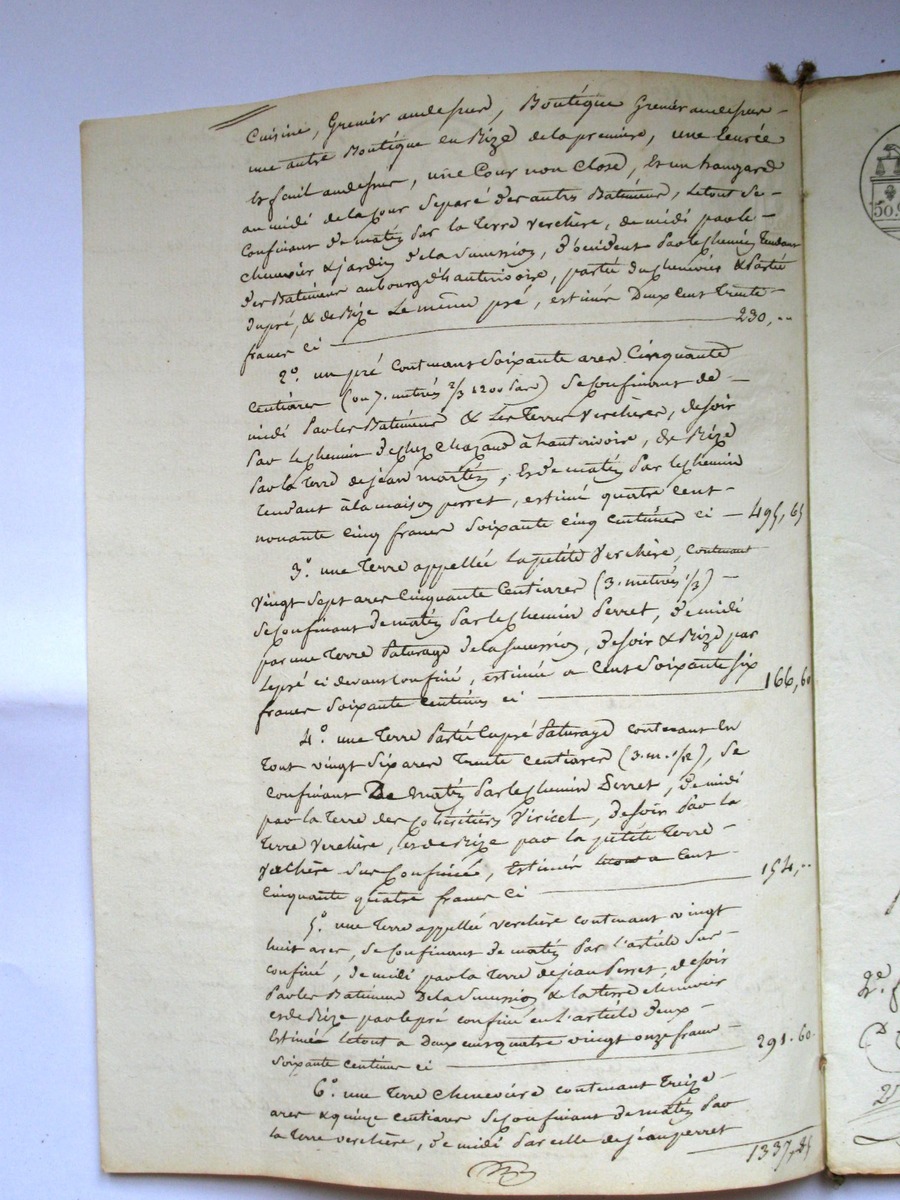 Cuisine, Grenier audessus, Boutique Grenier audessus –
une autre Boutique en Bize de la premiere, une Ecurie
& fenil audessus, une Cour non Close, Et un hangard
au midi de la Cour Separé des autres Batimens, letout Se –
Confinant de matin par la Terre Verchère, de midi par le –
Chenevier & jardin de la Succession, d'occident par le chemin Tendant
des Batimens au bourg d'hauterivoire, partie du chenevier & partie
du pré, & de Bize Le même pré, estimés Deux Cent Trente –
francs Ci 230,..
2º. un pré Contenant Soixante ares Cinquante
Centiares (ou 7. metrés 2/3 1200 pas) Se Confinant de –
midi par les Batimens & Les Terres Verchères, de soir
par le chemin de chez Chazaud à hauterivoire, de Bize
par la Terre de jean martin, Et de matin par le chemin
Tendant à la maison perret, estimé quatre Cent –
nonante Cinq francs Soixante Cinq Centimes Ci – 495,65
3º. une Terre appellée La petite Verchère, Contenant
Vingt Sept ares Cinquante Centiares (3. metrés 1/3) –
Se Confinant de matin par le chemin Perret, de midi
par une Terre Paturage de la Succession, de soir & Bize par
Le pré ci devant Confiné, estimée a Cent Soixante Six
francs Soixante Centimes ci 166,60
4º. une Terre Partie en pré Paturage contenant En
Tout vingt Six ares Trente Centiares (3. m. 1/12), Se
Confinant De matin par le chemin Perret, de midi
par la Terre des Cohéritiers Viricel, de soir par la
Terre Verchère, & de Bize par la petite Terre –
Verchère Sus Confinée, Estimée a Cent –
Cinquante quatre francs Ci 154,..
5º. une Terre appellée verchère contenant vingt
huit ares, Se Confinant de matin par l'article Sus –
Confiné, de midi par la Terre de jean Perret, de soir
par les Batimens de la Succession & la terre chenevier
et de Bize par le pré confiné en l'article deux –
Estimée letout a Deux cent quatre vingt onze francs –
Soixante Centimes ci 291.60.
6º. une Terre Chenevière contenant Treize –
ares & quinze Centiares Se Confinant de matin par
la Terre verchère, de midi par celle de jean perret
1337,85
50.
2e.